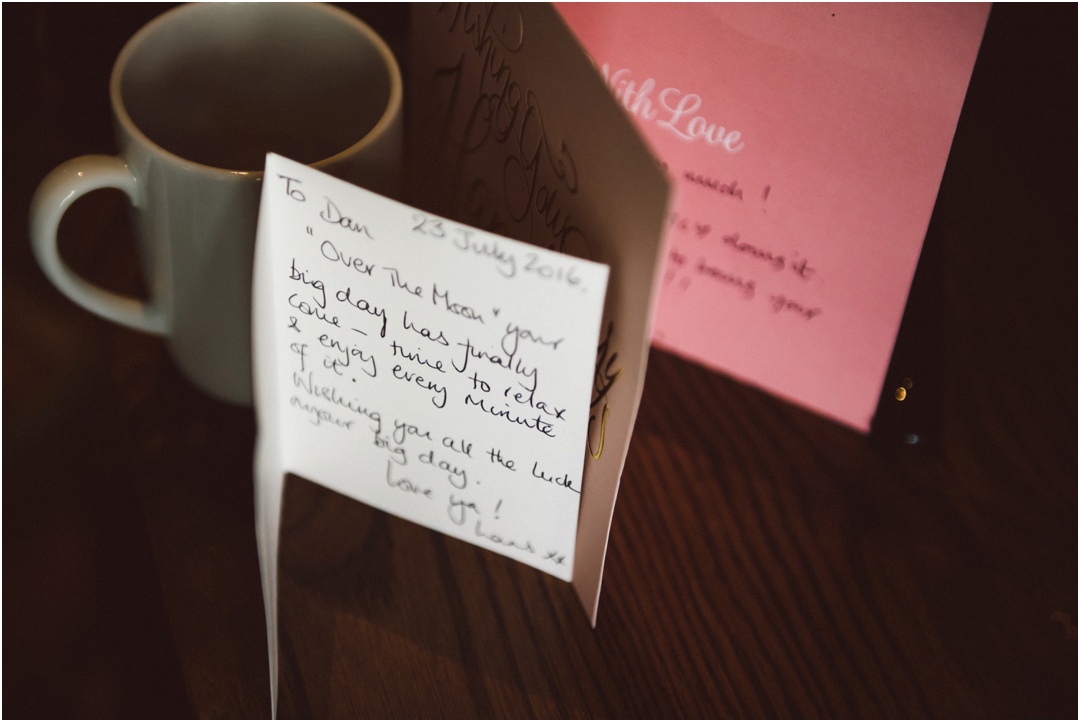 To Dan 23 July 2016.
"Over The Moon" your
big day has finally
come — time to relax
& enjoy every minute
of it.
Wishing you all the luck
your big day.
Love ya!
xx
With Love
much !
doing it
being your
!!